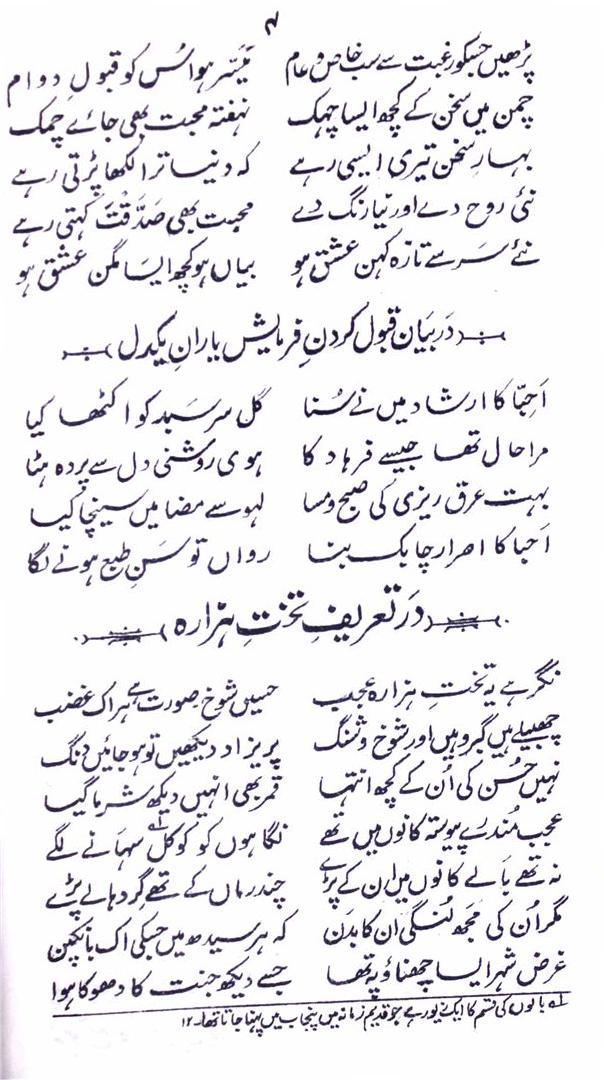 ۷
پڑھیں جسکو رغبت سے سب خاص و عام میسّر ہوا اُس کو قبولِ دوام
چمن میں سخن کے کچھ ایسا چہک نہفتہ محبت بھی جائے چمک
بہارِ سخن تیری ایسی رہے کہ دنیا ترا لکھا پڑتی رہے
نئی روح دے اور نیا رنگ دے محبت بھی صَدَّقْتَ کہتی رہے
نئے سَر سے تازہ کہن عشق ہو بیاں ہو کچھ ایسا مگن عشق ہو
در بیَان قبول کردنِ فرمایش یارانِ یکدل
اَحِبّا کا ارشاد میں نے سُنا گل سرسَبد کو اکٹھا کیا
مرا حال تھا جیسے فرہاد کا ہوی روشنی دل سے پردہ ہٹا
بہت عرق ریزی کی صبح و مسا لہو سے مضامیں سینچا کیا
احبا کا اصرار چابک بنا رواں توسَنِ طبع ہونے لگا
دَر تعریفِ تختِ ہزارہ
نگر ہے یہ تختِ ہزارہ عجیب حسیں شوخ صورت ہے ہر اک غضب
چھبیلے ہیں گبرو ہیں اور شوخ و شنگ پریزاد دیکھیں تو ہو جائیں دنگ
نہیں حُسن کی اُن کے کچھ انتہا قمر بھی انہیں دیکھ شرما گیا
عجب مُندرے پیوستہ کانوں میں تھے نگاہوں کو کوکلے لہ سہانے لگے
نہ تھے بَالے کانوں میں ان کے پڑے چندرماں کے تھے گرد ہالے پڑے
مگر اُن کی مجھ لُنگی ان کا بدَن کہ ہر سیدھ میں جسکی اک بانکپن
غرض شہر ایسا چھناؤ پہ تھا جسے دیکھ جنت کا دھوکا ہوا
لہ بالوں کی قسم کا ایک زیور ہے جو قدیم زمانہ میں پنجاب میں پہنا جاتا تھا۔ ۱۲